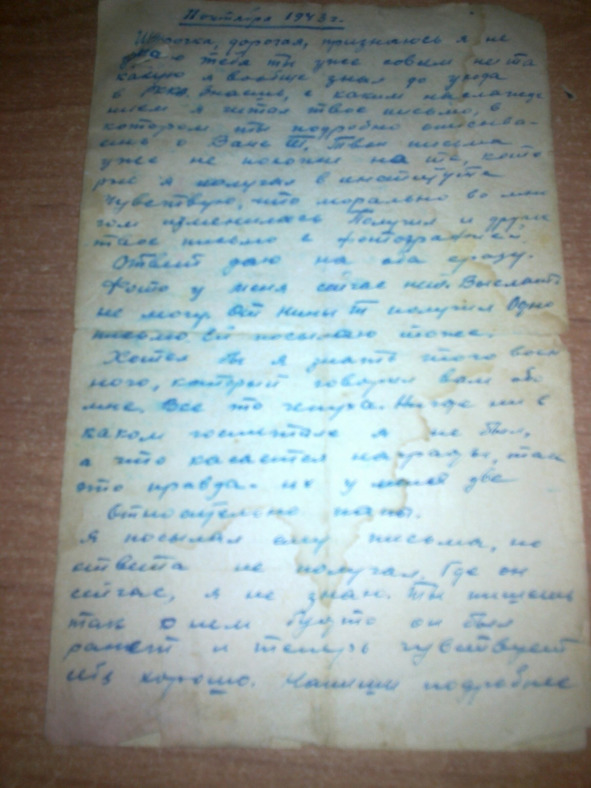 ноября 1943 г.
дорогая, признаюсь я не
тебя ты уже совсем не та
какую я вообще знал до ухода
в РККА. Знаешь, с каким наслажде
нием я читал твое письмо, в
котором ты подробно описыва-
ешь о Ване Т. Твои письма
уже не похожи на те, кото
рые я получал в институте
Чувствую, что морально во мно
гом изменилась Получил и другое
твое письмо с фотографией.
Ответ даю на оба сразу.
Фото у меня сейчас нет. Выслать
не могу. От Нины Т получил одно
письмо. Ей посылаю тоже.
Хотел бы я знать этого воен
ного, который говорил вам обо
мне. Все то чепуха. Нигде ни в
каком госпитале я не был,
а что касается награды, так
это правда - их у меня две
относительно папы.
Я посылал ему письма, но
ответа не получал. Где он
сейчас, я не знаю. Ты пишешь
так о нем будто он был
ранен и теперь чувствует
себя хорошо. Напиши подробнее